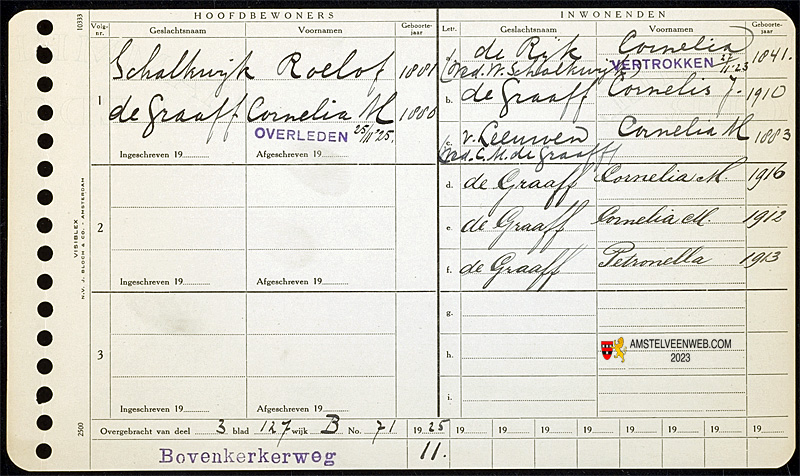 HOOFDBEWONERS
INWONENDEN
Volg-nr.
Geslachtsnaam
Voornamen
Geboorte-jaar
Letr.
Geslachtsnaam
Voornamen
Geboorte-jaar
1
Schalkwijk Roelof 1881
de Graaff Cornelia M 1880
OVERLEDEN 25/11 '25.
Ingeschreven 19
Afgeschreven 19
2
Ingeschreven 19
Afgeschreven 19
3
Ingeschreven 19
Afgeschreven 19
a. de Rijk Cornelia 1841.
(Wed. W. Schalkwijk) VERTROKKEN
b. de Graaff Cornelis J. 1910
c. v. Leeuwen Cornelia M 1883
(Wed. C. M. de Graaff)
d. de Graaff Cornelia M. 1916
e. de Graaff Cornelia M 1912
f. de Graaff Petronella 1913
g.
h.
i.
AMSTELVEENWEB.COM
2023
Overgebracht van deel 3 blad 127 wijk B No. 71
1925 19 19 19 19 19 19 19 19
Bovenkerkerweg 11.
10333
VISIBLEX
N.V. J. BLOCH & CO. - AMSTERDAM
2500